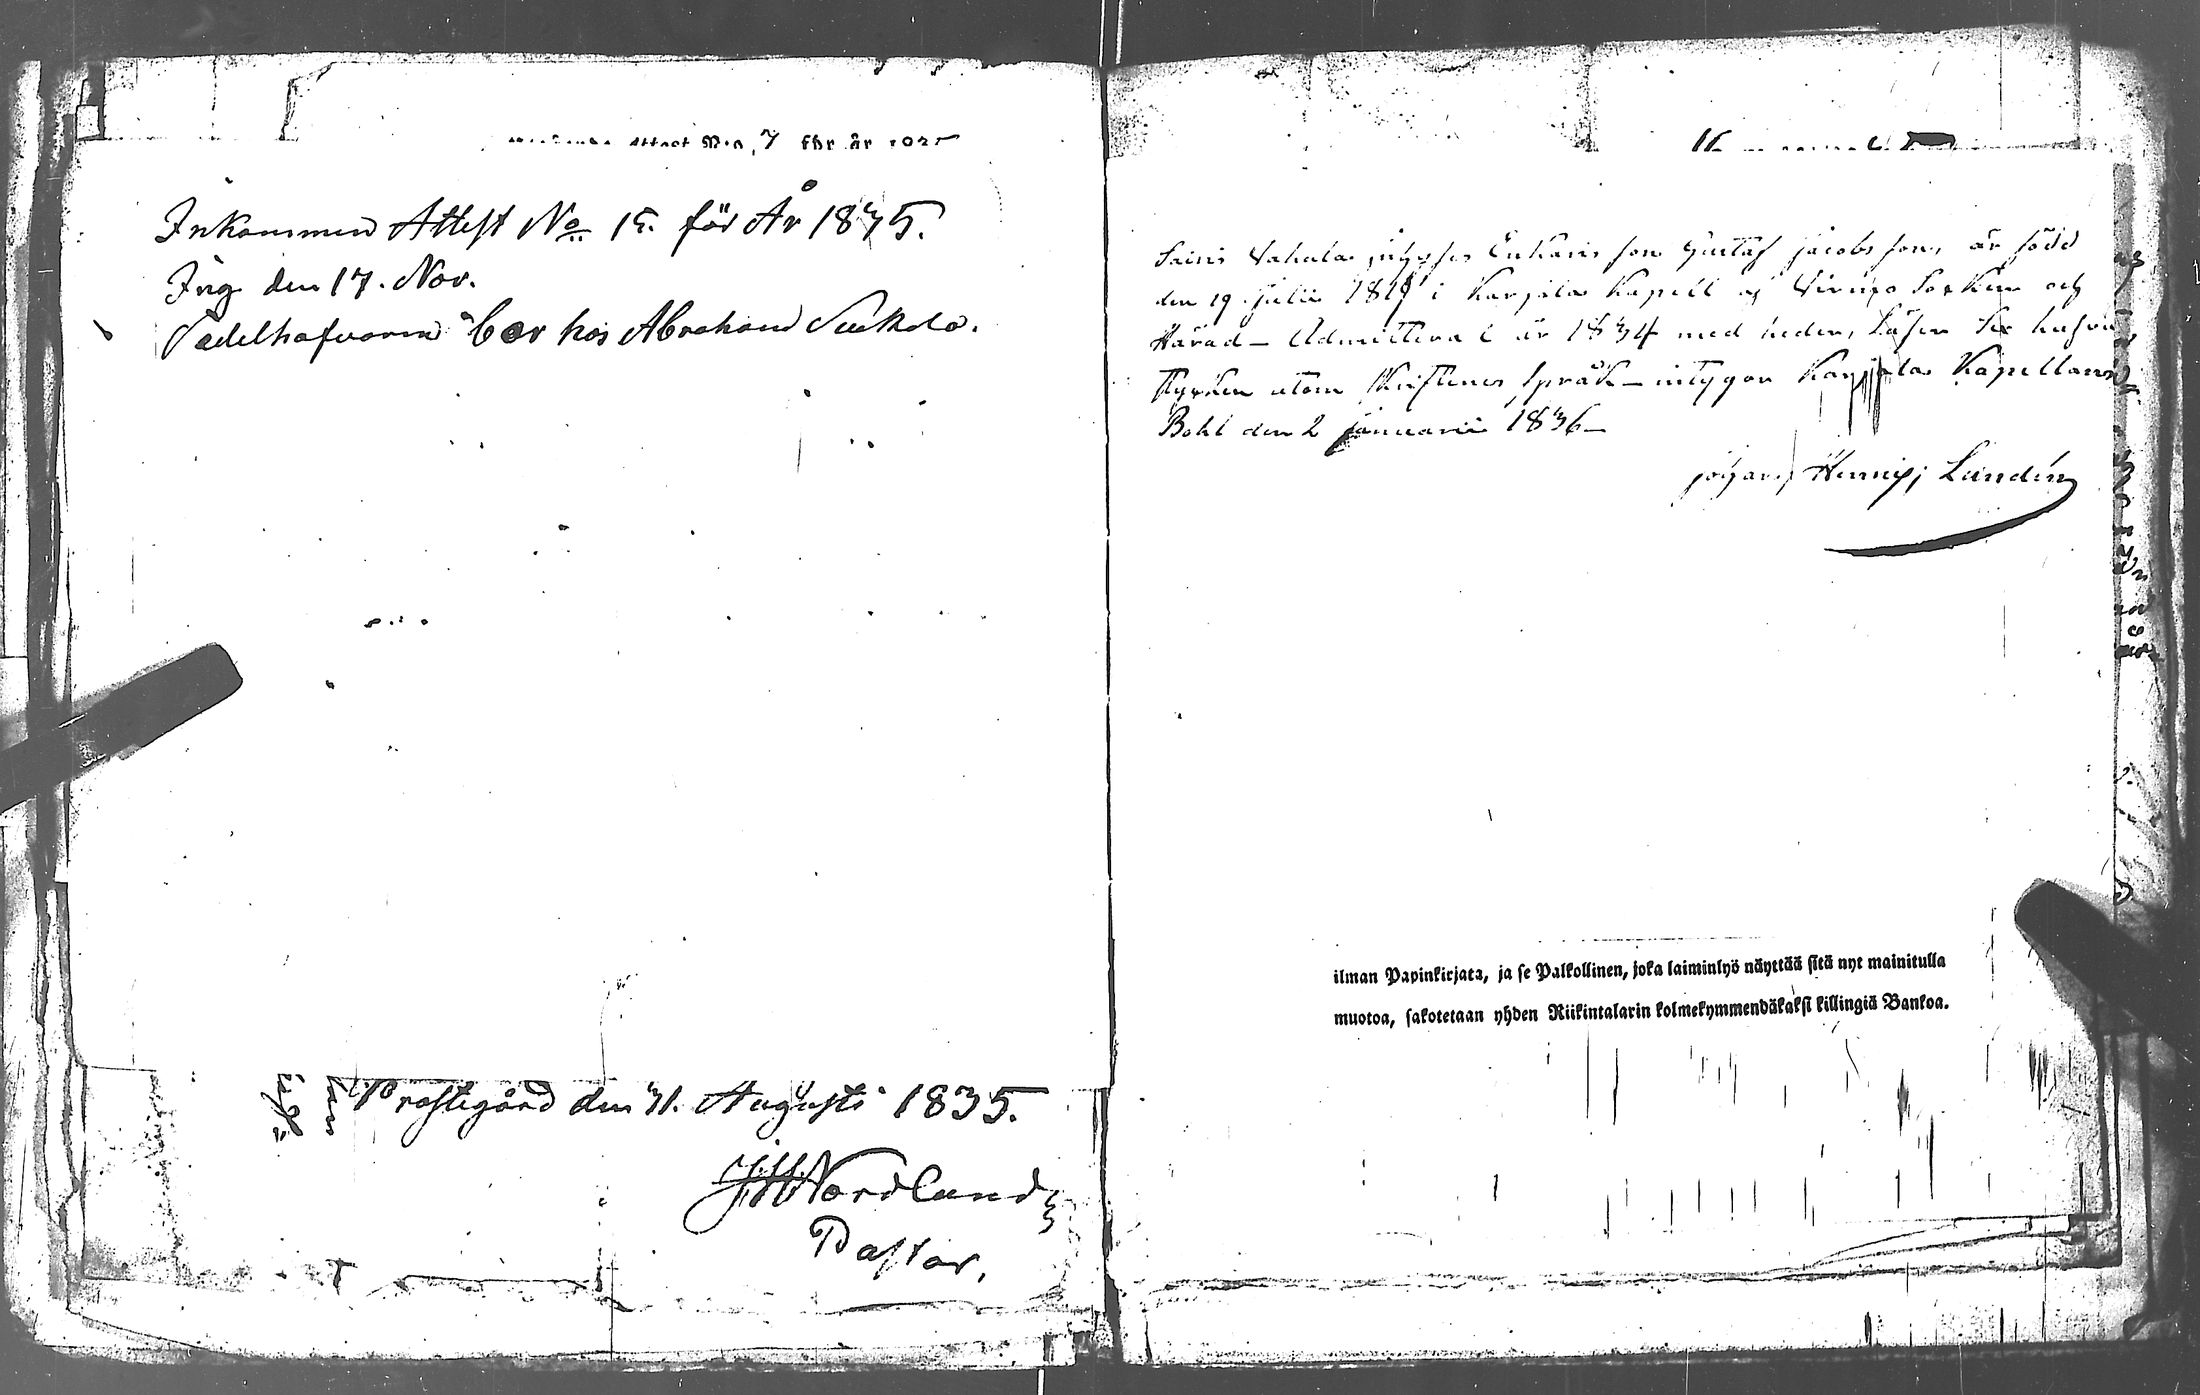 Attest N:o 7 för år 1835
Inkommen Attest No 15. för År 1835.
Ing den 17. Nov.
Sedelhafvaren bor hos Abraham Suckala.
Prostegård den 31. Augusti 1835.
J.H. Nordlund
Pastor.
Enkans son Gustaf Jacobsson, är född
den 19 Julii 1819 i Karjala Kapell af Virmo Socken och
Härad – Admitterad år 1834 med heder, Läser
Stycken utom Skriftenes Språk – intygar Karjala Kapellans
Bohl den 2 Januarii 1836 –
Johan Henric Lundén
ilman Papinkirjata, ja se Palkollinen, joka laiminlyö näyttää sitä nyt mainitulla
muotoa, sakotetaan yhden Riikintalarin kolmekymmendäkaksi killingiä Bankoa.